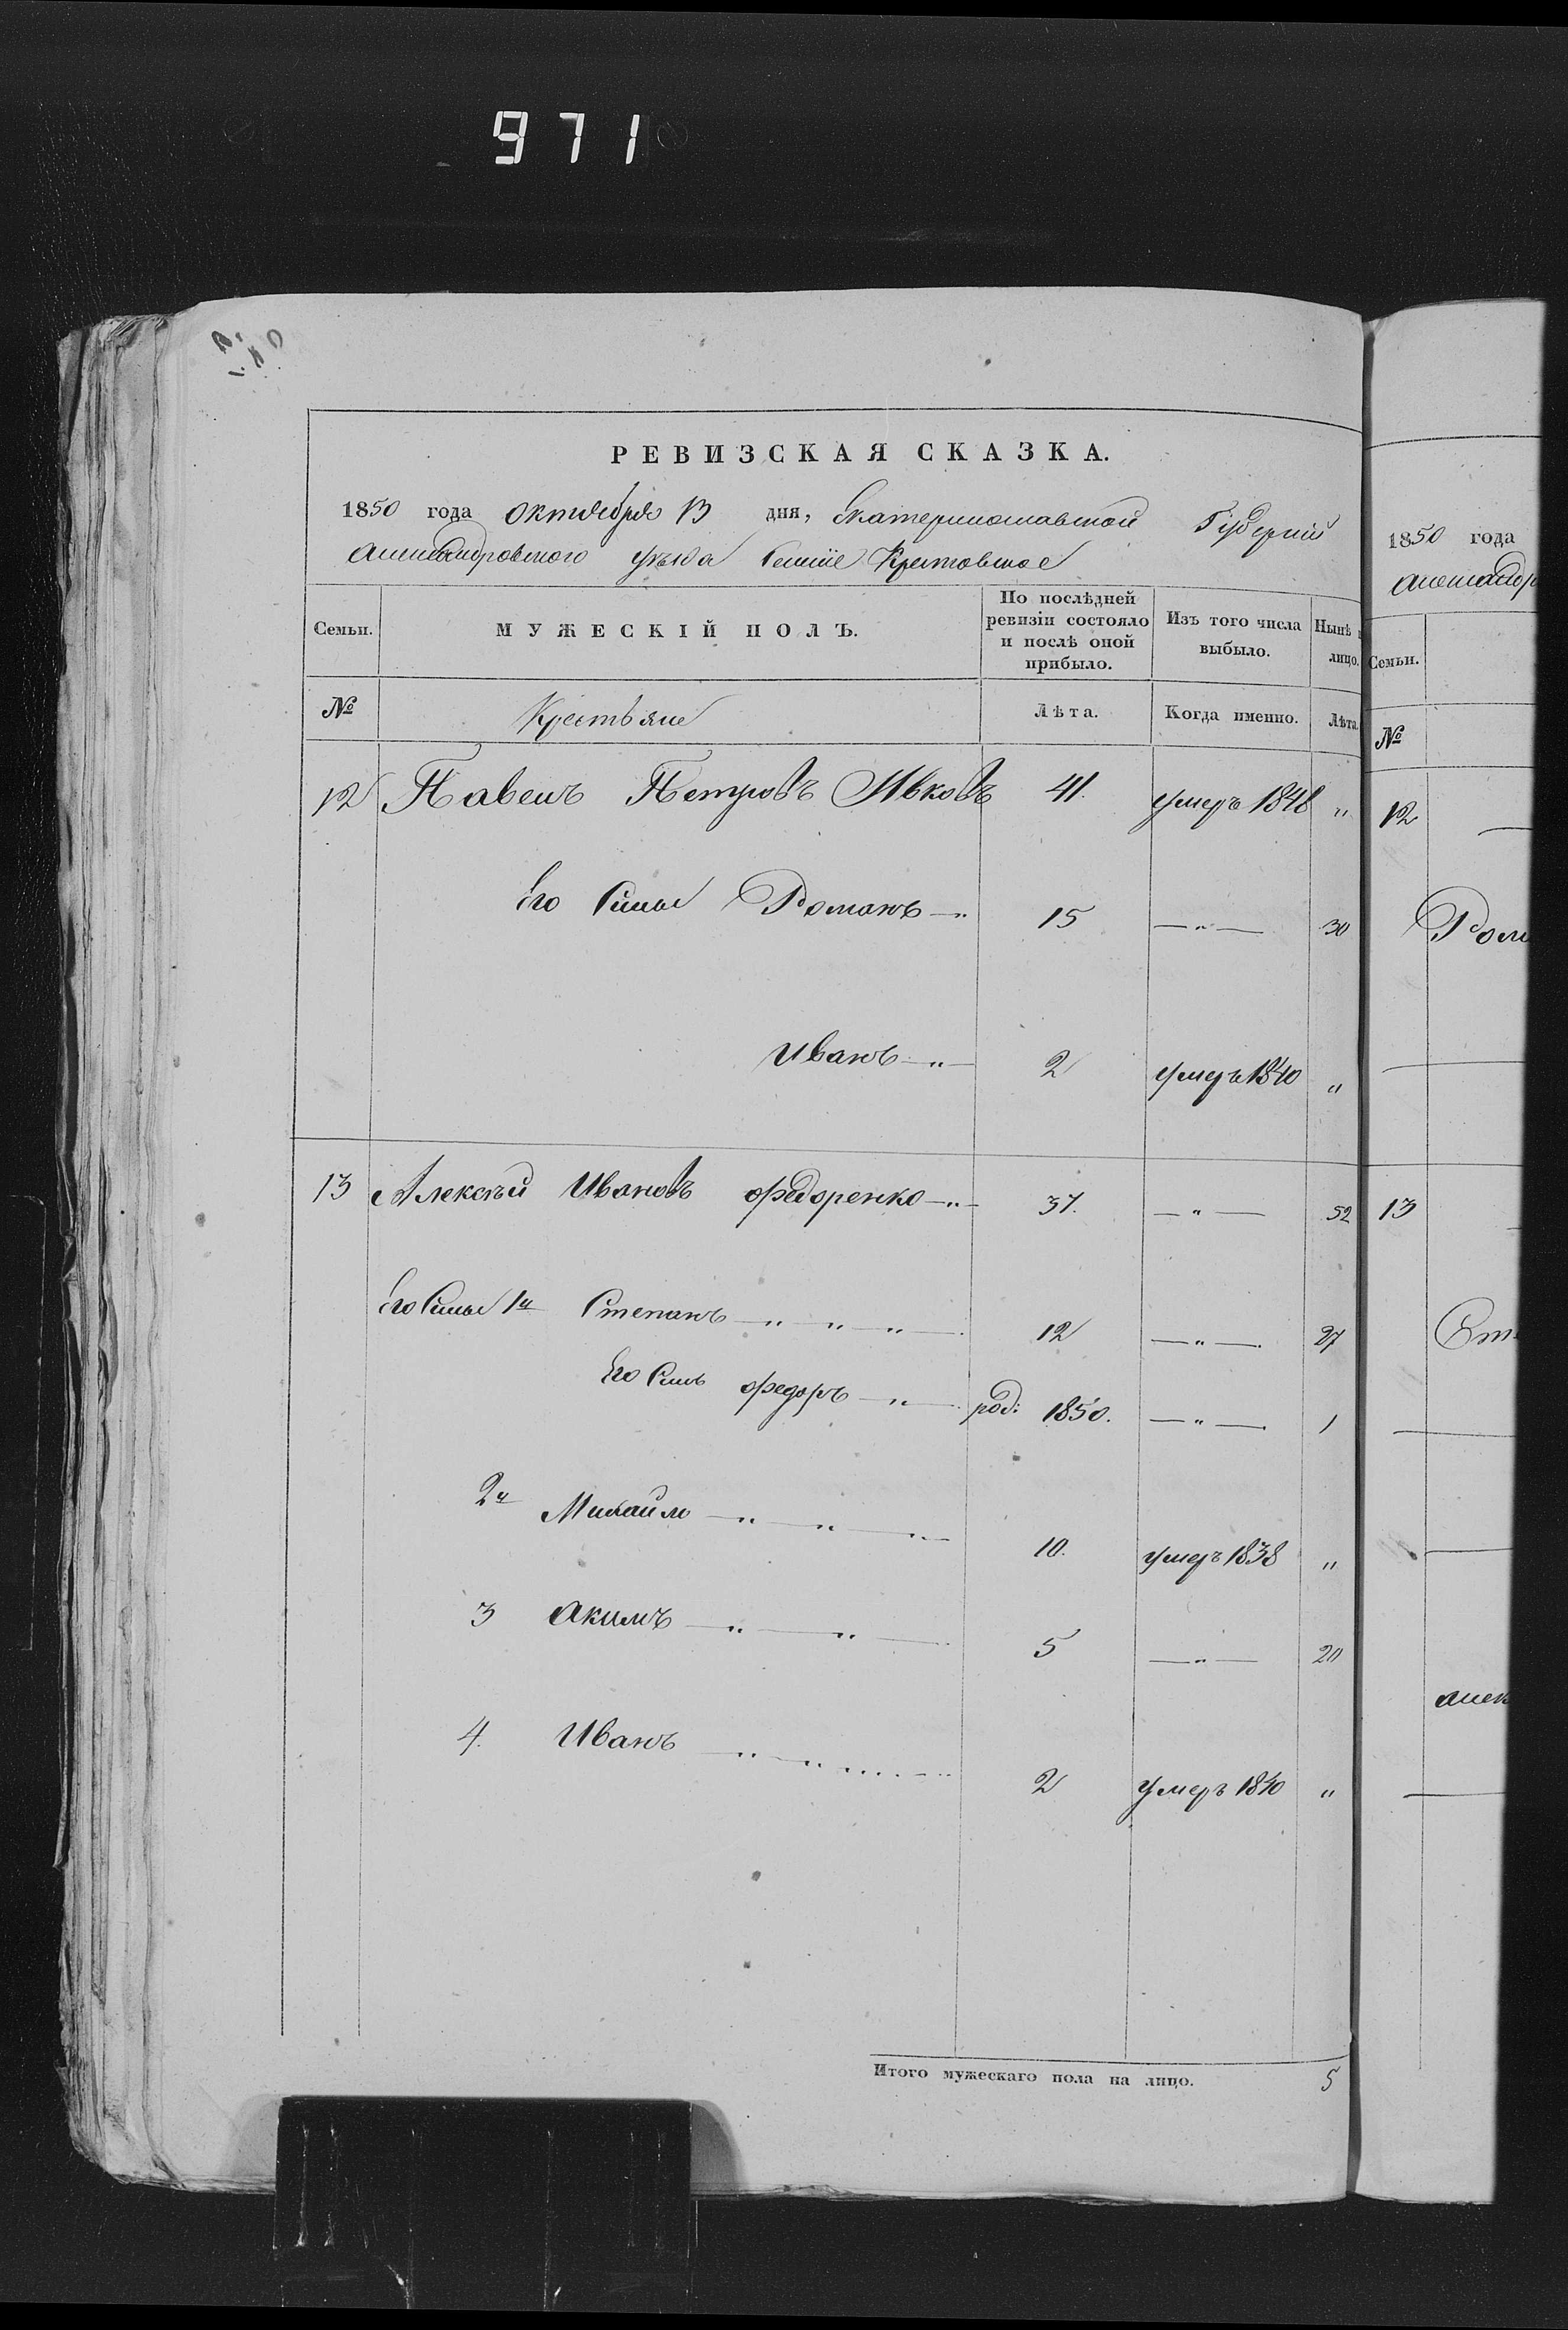 971
РЕВИЗСКАЯ СКАЗКА.
1850 года Октября 13 дня, Екатеринославской Губерній
Александровского уезда Крестовское
Семьи. МУЖЕСКІЙ ПОЛЪ. По послѣдней ревизіи состояло и послѣ оной прибыло. Изъ того числа выбыло. Нынѣ лицо.
№ Крестьяне Лѣта. Когда именно. Лѣта
12 Павелъ Петровъ Ивковъ 41. умеръ 1848 "
Его Сины Романъ —"— 15 —"— 30
Иванъ —"— 2 умеръ 1840 "
13 Алексѣй Ивановъ Федоренко —"— 37. —"— 52
Его Сины 1й Степанъ —"—"—"— 12 —"— 27
Его Синъ Федоръ —"— род: 1850. —"— 1
2й Михайло —"—"—"— 10. умеръ 1838 "
3 Акимъ —"—"— 5 —"— 20
4. Иванъ —"—"— 2 умеръ 1840 "
Итого мужескаго пола на лицо. 5
1850 года
Александр
Семьи.
№
12
Рома
13
Сте
Алек